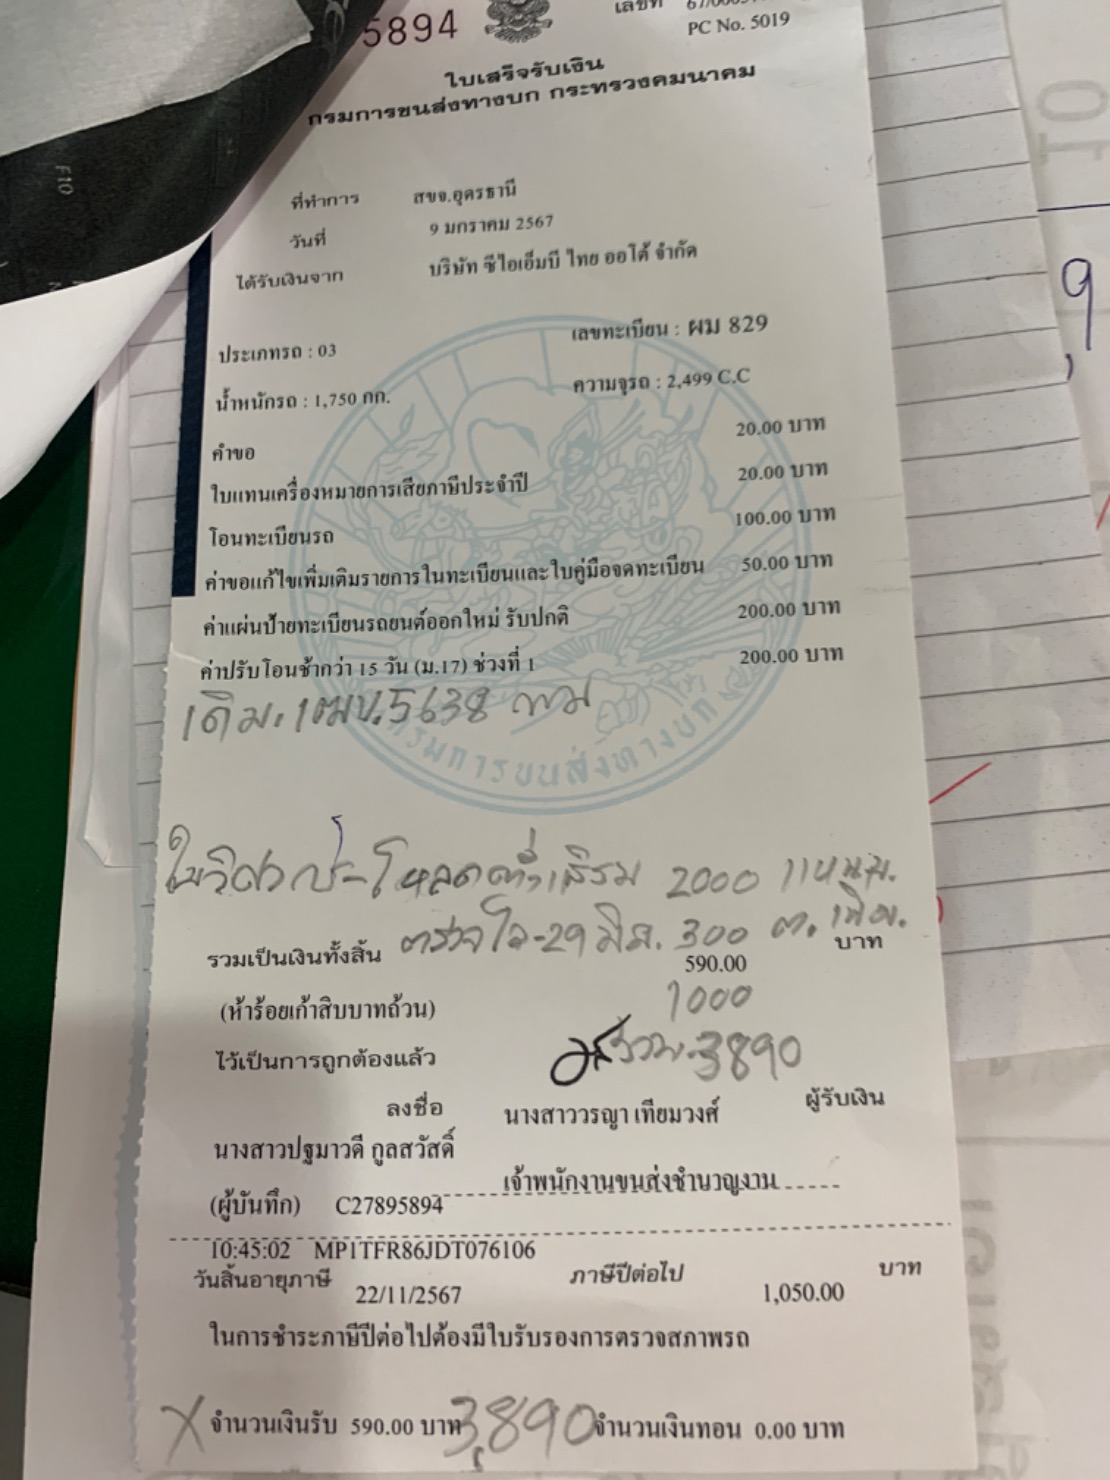 5894
เลขที่ 67/
PC No. 5019
ใบเสร็จรับเงิน
กรมการขนส่งทางบก กระทรวงคมนาคม
F10
ที่ทำการ สขจ.อุดรธานี
วันที่ 9 มกราคม 2567
ได้รับเงินจาก บริษัท ซีไอเอ็มบี ไทย ออโต้ จำกัด
ประเภทรถ : 03 เลขทะเบียน : ผม 829
น้ำหนักรถ : 1,750 กก. ความจุรถ : 2,499 C.C
คำขอ 20.00 บาท
ใบแทนเครื่องหมายการเสียภาษีประจำปี 20.00 บาท
โอนทะเบียนรถ 100.00 บาท
ค่าขอแก้ไขเพิ่มเติมรายการในทะเบียนและใบคู่มือจดทะเบียน 50.00 บาท
ค่าแผ่นป้ายทะเบียนรถยนต์ออกใหม่ รับปกติ 200.00 บาท
ค่าปรับโอนช้ากว่า 15 วัน (ม.17) ช่วงที่ 1 200.00 บาท
เดิม. 5638 กทม
กรมการขนส่งทางบก
โหลดต่ำเสริม 2000 แหนบ.
ตรวจ 29 มิ.ย. 300
รวมเป็นเงินทั้งสิ้น 590.00 บาท
(ห้าร้อยเก้าสิบบาทถ้วน) 1000
ไว้เป็นการถูกต้องแล้ว รวม 3890
ลงชื่อ นางสาววรญา เทียมวงศ์ ผู้รับเงิน
นางสาวปฐมาวดี กูลสวัสดิ์
เจ้าพนักงานขนส่งชำนาญงาน
(ผู้บันทึก) C27895894
10:45:02 MP1TFR86JDT076106
วันสิ้นอายุภาษี 22/11/2567 ภาษีปีต่อไป 1,050.00 บาท
ในการชำระภาษีปีต่อไปต้องมีใบรับรองการตรวจสภาพรถ
X จำนวนเงินรับ 590.00 บาท 3,890 จำนวนเงินทอน 0.00 บาท